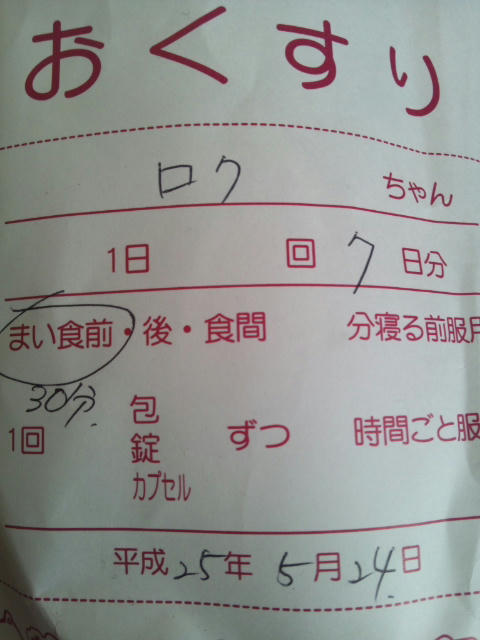 おくすり
ロク ちゃん
1日 回 7 日分
まい食前・後・食間 分寝る前服
30分
1回 包 ずつ 時間ごと服
錠
カプセル
平成 25年 5月 24日